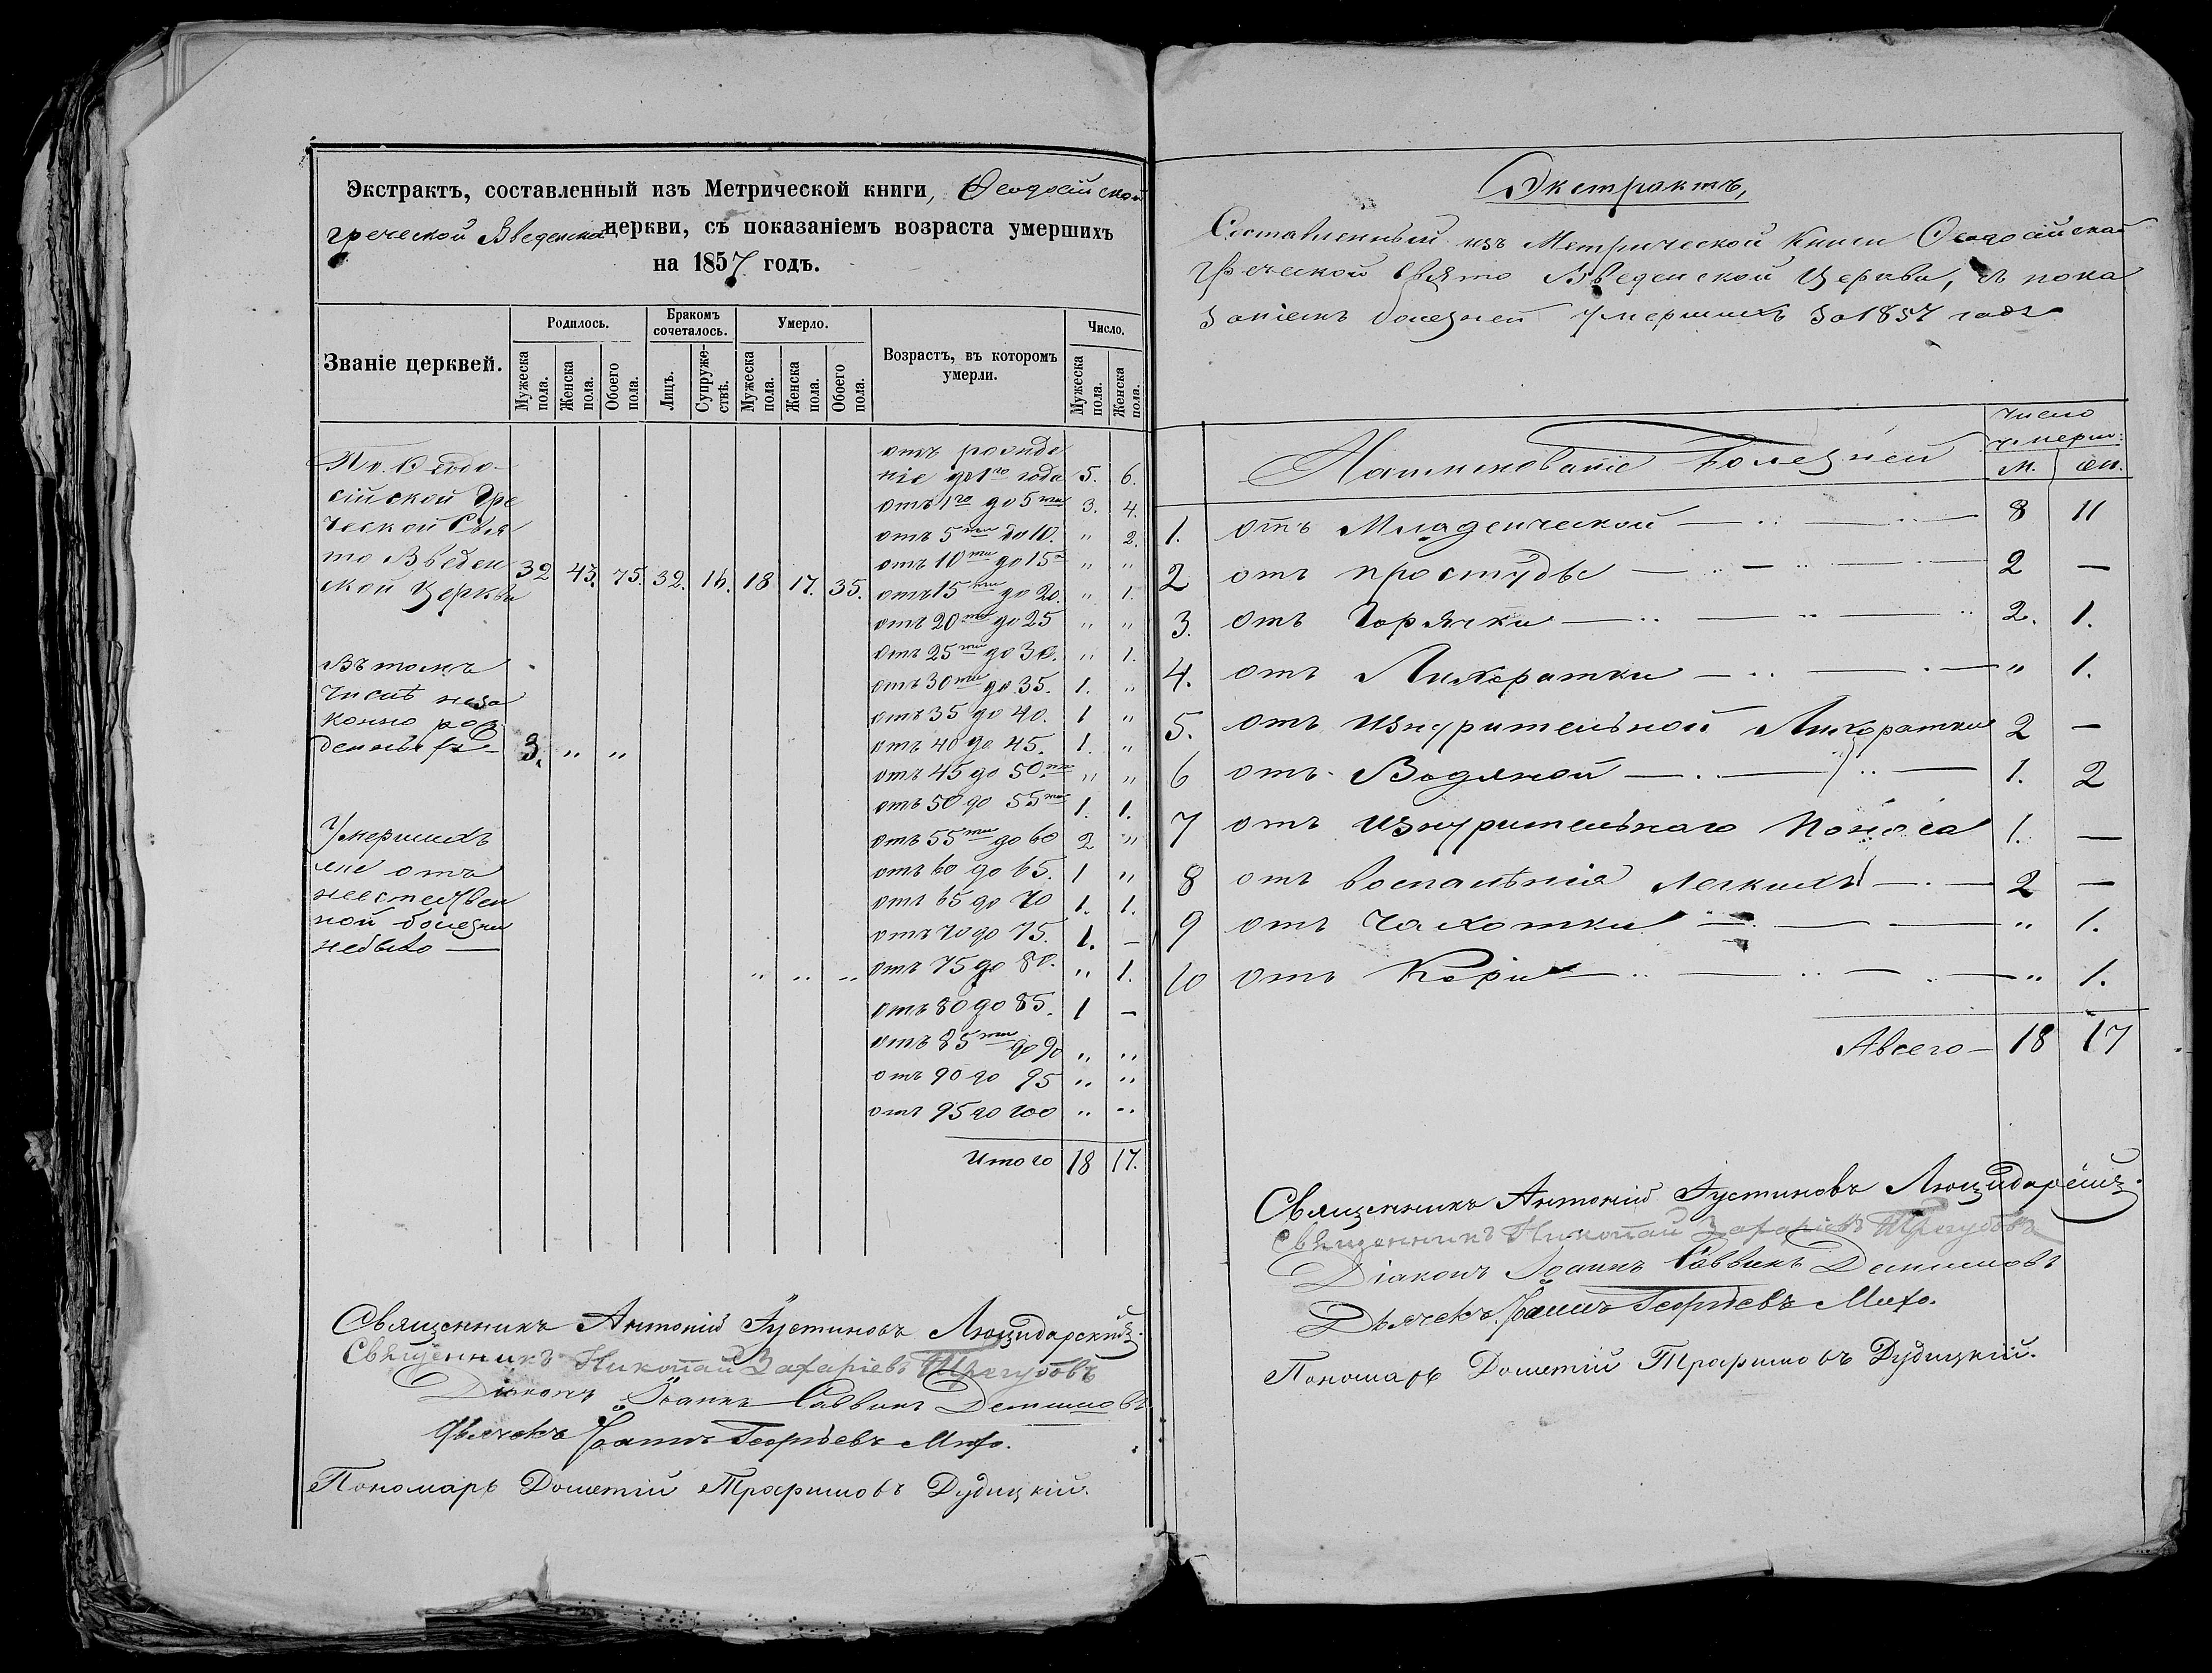 Экстрактъ, составленный изъ Метрической книги, Ѳеодосійской
греческой Введенской церкви, съ показаніемъ возраста умершихъ
на 1857 годъ.
Званіе церквей.
Родилось.
Бракомъ сочеталось.
Умерло.
Возрастъ, въ которомъ умерли.
Число.
Мужеска пола.
Женска пола.
Обоего пола.
Лицъ.
Супружествъ.
Мужеска пола.
Женска пола.
Обоего пола.
Мужеска пола.
Женска пола.
По Ѳеодо-
сійской Гре
ческой Свя
то Введен
ской Церкви
32 43. 75. 32. 16. 18 17. 35.
Въ томъ
числѣ неза
конно рож
денныхъ 3. " "
Умершихъ
же отъ
неестествен
ной болезни
небыло —
отъ рожде
ніе до 1го года 5. 6.
отъ 1го до 5ти 3. 4.
отъ 5ти до 10. " 2.
отъ 10ти до 15 " "
отъ 15ти до 20. " 1.
отъ 20ти до 25 " "
отъ 25ти до 30. " 1.
отъ 30ти до 35. 1. "
отъ 35 до 40. 1 "
отъ 40 до 45. 1. "
отъ 45 до 50ти " "
отъ 50 до 55ти 1. 1.
отъ 55ти до 60 2 "
отъ 60 до 65. 1 "
отъ 65 до 70 1. 1.
отъ 70 до 75. 1. –
" " " отъ 75 до 80. " 1.
отъ 80 до 85. 1 –
отъ 85ти до 90 " "
отъ 90 до 95 " "
отъ 95 до 100 " "
Итого 18 17.
Священникъ Антоній Іустиновъ Люцидарскій.
Священникъ Николай Захаріевъ
Діаконъ Іоаннъ Саввинъ
Дьячекъ Іоаннъ Георгіевъ Михо.
Пономарь Дометій Трофимовъ Дудицкій.
Экстрактъ,
Составленный изъ Метрической Книги Ѳеодосійской
Греческой Свято Введенской Церкви, съ пока
заніемъ болезней умершихъ за 1857 годъ
Наименованіе Болезней
Число
умерш:
м. жен.
1. отъ Младенческой 8 11
2 отъ простуды 2 —
3. отъ Горячки 2. 1.
4. отъ Лихоратки " 1.
5. отъ Изнурительной Лихоратки 2 —
6 отъ Водяной 1. 2
7 отъ изнурительнаго Поноса 1. —
8 отъ воспалѣнія легкихъ 2 —
9 отъ чахотки " 1.
10 отъ Кори " 1.
Авсего — 18 17
Священникъ Антоній Іустиновъ Люцидарскій.
Священникъ Николай Захаріевъ
Діаконъ Іоаннъ Саввинъ
Дьячекъ Іоаннъ Георгіевъ Михо.
Пономарь Дометій Трофимовъ Дудицкій.